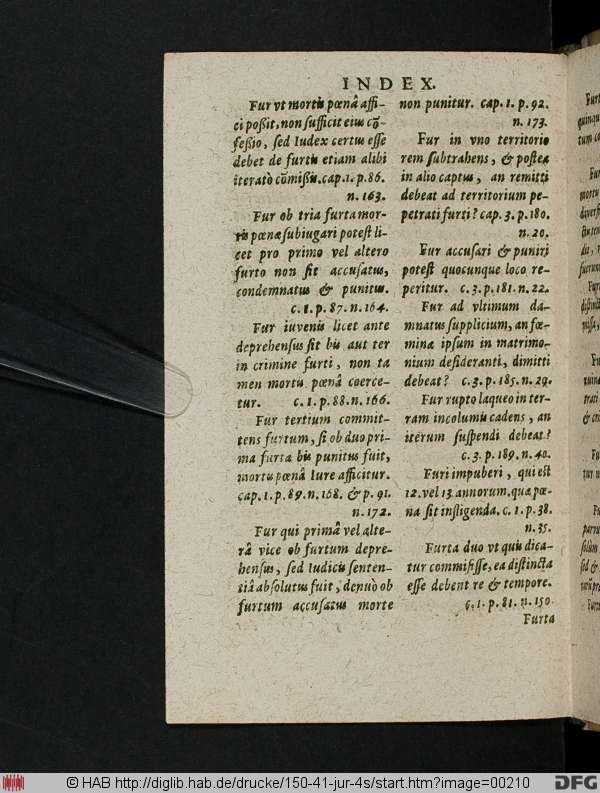 INDEX.
Fur vt mortis pœnâ affi-
ci poßit, non sufficit eius cõ-
feßio, sed Iudex certus esse
debet de furtis etiam alibi
iteratò cõmißis. cap. 1. p. 86.
n. 163.
Fur ob tria furta mor-
tis pœnæ subiugari potest li-
cet pro primo vel altero
furto non sit accusatus,
condemnatus & punitus.
c. 1. p. 87. n. 164.
Fur iuvenis licet ante
deprehensus sit bis aut ter
in crimine furti, non ta
men mortis pœnâ coerce-
tur. c. 1. p. 88. n. 166.
Fur tertium commit-
tens furtum, si ob duo pri-
ma furta bis punitus fuit,
mortis pœnâ Iure afficitur.
cap. 1. p. 89. n. 168. & p. 91.
n. 172.
Fur qui primâ vel alte-
râ vice ob furtum depre-
hensus, sed Iudicis senten-
tiâ absolutus fuit, denuò ob
furtum accusatus morte
non punitur. cap. 1. p. 92.
n. 173.
Fur in vno territorio
rem subtrahens, & postea
in alio captus, an remitti
debeat ad territorium pe-
petrati furti? cap. 3. p. 180.
n. 20.
Fur accusari & puniri
potest quocunque loco re-
peritur. c. 3. p. 181. n. 22.
Fur ad vltimum da-
mnatus supplicium, an fœ-
minæ ipsum in matrimo-
nium desideranti, dimitti
debeat? c. 3. p. 185. n. 29.
Fur rupto laqueo in ter-
ram incolumis cadens, an
iterùm suspendi debeat?
c. 3. p. 189. n. 40.
Furi impuberi, qui est
12. vel 13. annorum, quæ pœ-
na sit infligenda. c. 1. p. 38.
n. 35.
Furta duo vt quis dica-
tur commisisse, ea distincta
esse debent re & tempore.
c. 1. p. 81. n. 150.
Furta
© HAB http://diglib.hab.de/drucke/150-41-jur-4s/start.htm?image=00210
DFG